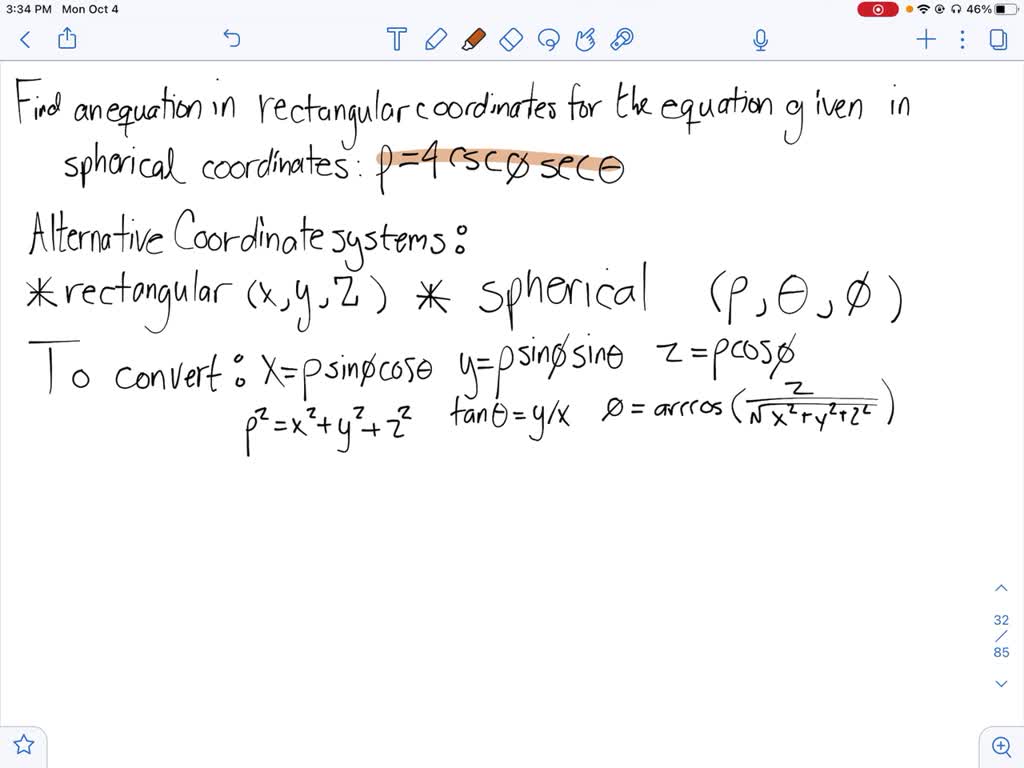 3:34 PM Mon Oct 4 46%
Find an equation in rectangular coordinates for the equation given in
spherical coordinates: ρ=4cscφsecθ
Alternative Coordinate systems:
*rectangular (x,y,z) * spherical (ρ,θ,φ)
To convert: x=ρsinφcosθ y=ρsinφsinθ z=ρcosφ
ρ²=x²+y²+z² tanθ=y/x φ=arccos(z/√x²+y²+z²)
32
/
85